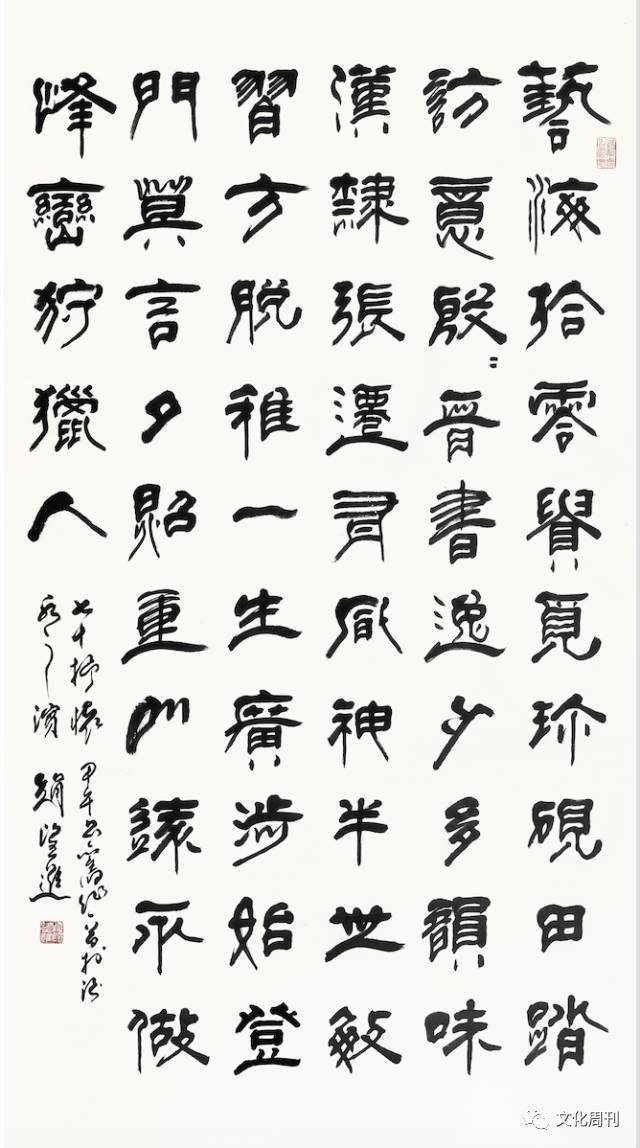 藝海拾零貴覓珍硯田踏
訪意殷〻晉書逸少多韻味
漢隸張遷神半世敏
習方脫稚一生廣涉始登
門莫言夕照重山遠永做
峰巒狩獵人
七十抒懷 甲午舊作
之濱 趙望進
文化周刊